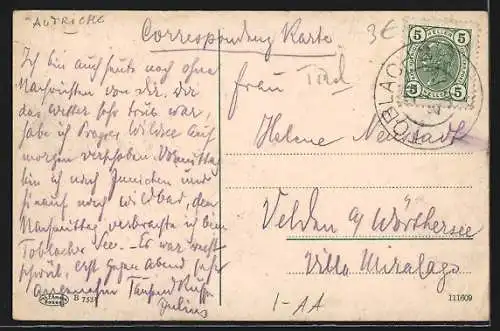 AUTRICHE
Correspondenz Karte
3€
5 HELLER 5
5 5
TOBLACH
Ich bin auch heute noch ohne
Nachrichten von dir. Da
das Wetter sehr trüb war,
habe ich Pragser Wildsee auf
morgen verschoben. Vormittag
bin ich nach Innichen und
hinauf nach Wildbad, den
Nachmittag verbrachte ich beim
Toblacher See. – Es war recht
schwül, erst gegen Abend sehr
angenehm Tausend Küsse
Julius
Frau
Helene Neustadt
Velden a/ Wörthersee
Villa Miralago
1-AA
B 753
111609